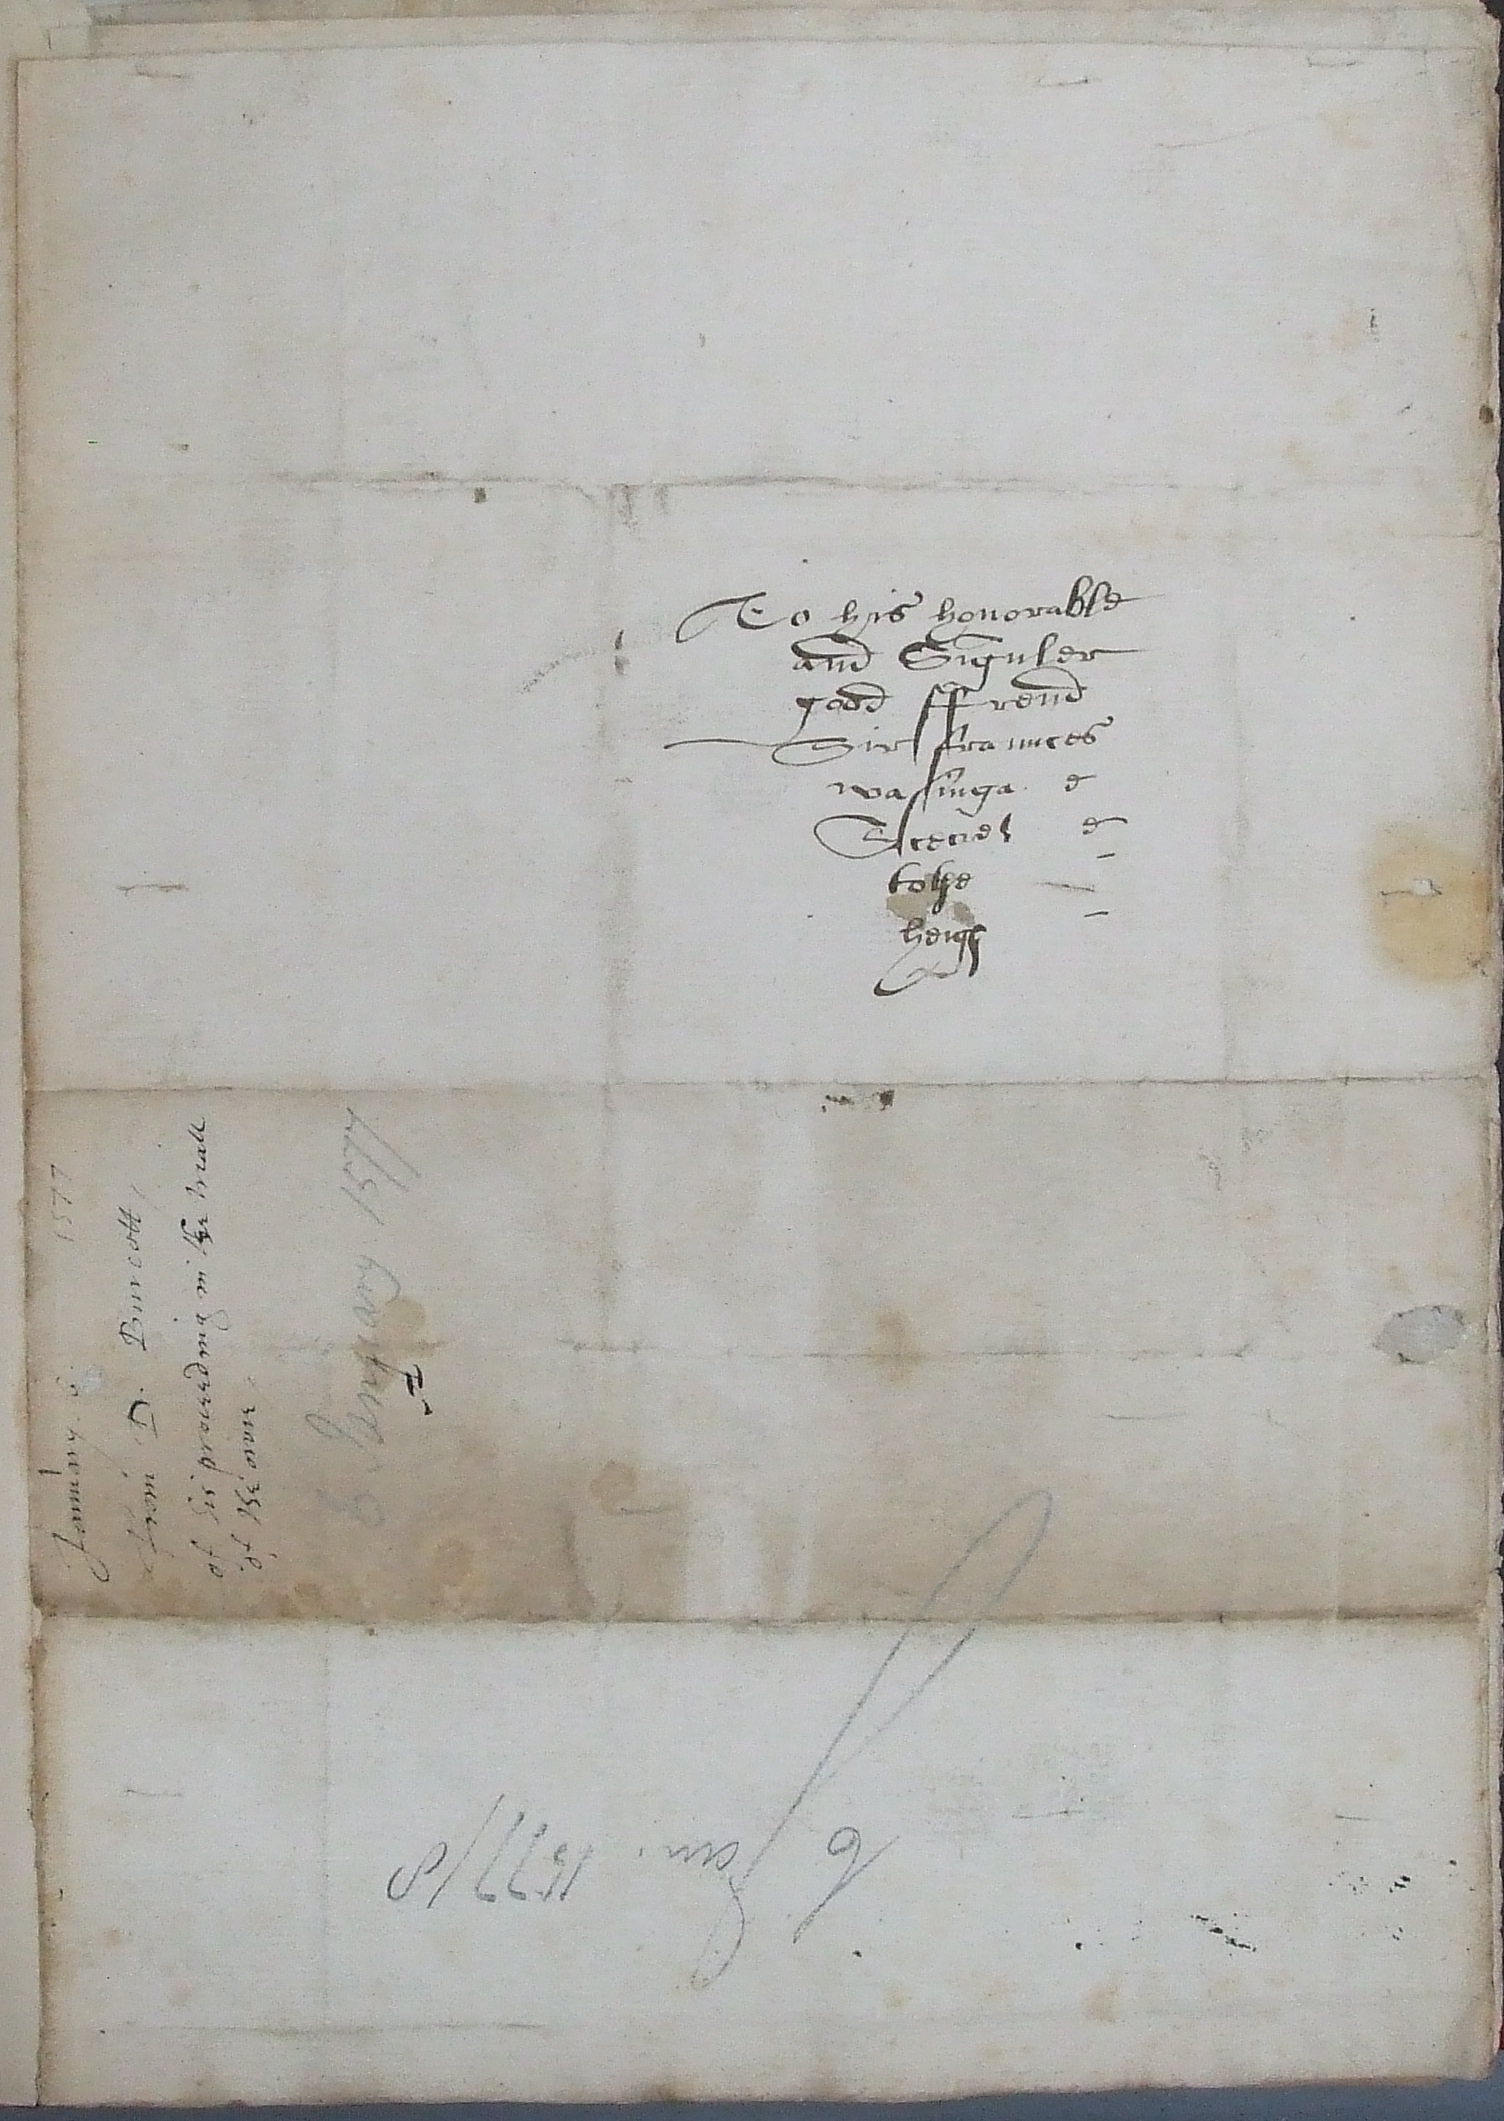 To his honorable
and Singuler
good ffrend
Sir frannces
walsinga e
Secret e
to the
heigh
January 6. 1577
From D. Burcott,
of his proceeding in the triall
of the owre
6 January 1577
6 Jan. 1577/8